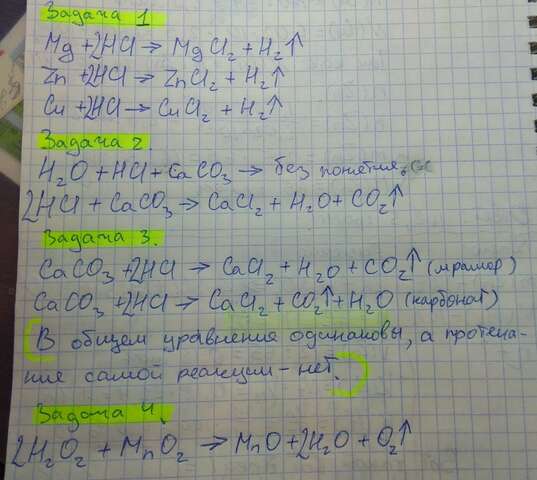 Задача 1
Mg + 2HCl → MgCl₂ + H₂↑
Zn + 2HCl → ZnCl₂ + H₂↑
Cu + 2HCl → CuCl₂ + H₂↑
Задача 2.
H₂O + HCl + CaCO₃ → без понятия.
2HCl + CaCO₃ → CaCl₂ + H₂O + CO₂↑
Задача 3.
CaCO₃ + 2HCl → CaCl₂ + H₂O + CO₂↑ (мрамор)
CaCO₃ + 2HCl → CaCl₂ + CO₂↑ + H₂O (карбонат)
[В общем уравнения одинаковы, а протека-
ние самой реакции – нет.]
Задача 4.
2H₂O₂ + MnO₂ → MnO + 2H₂O + O₂↑